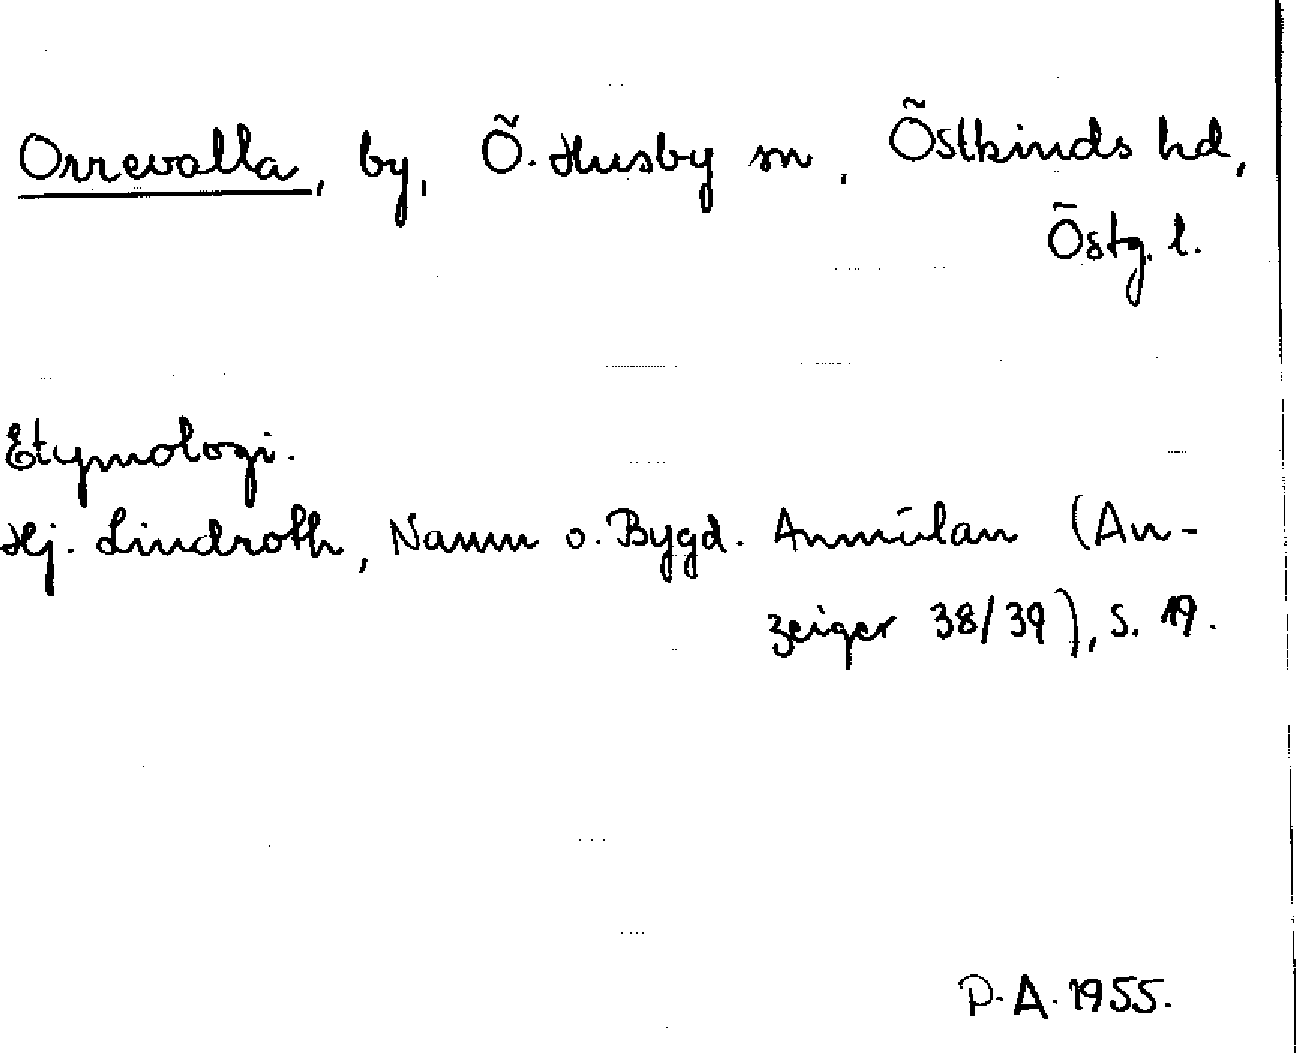 Orrevalla, by, Ö. Husby sn, Östkinds hd,
Östg. l.
Etymologi.
Hj. Lindroth, Namn o. Bygd. Anmälan (An-
zeiger 38/39), S. 19.
P.A. 1955.